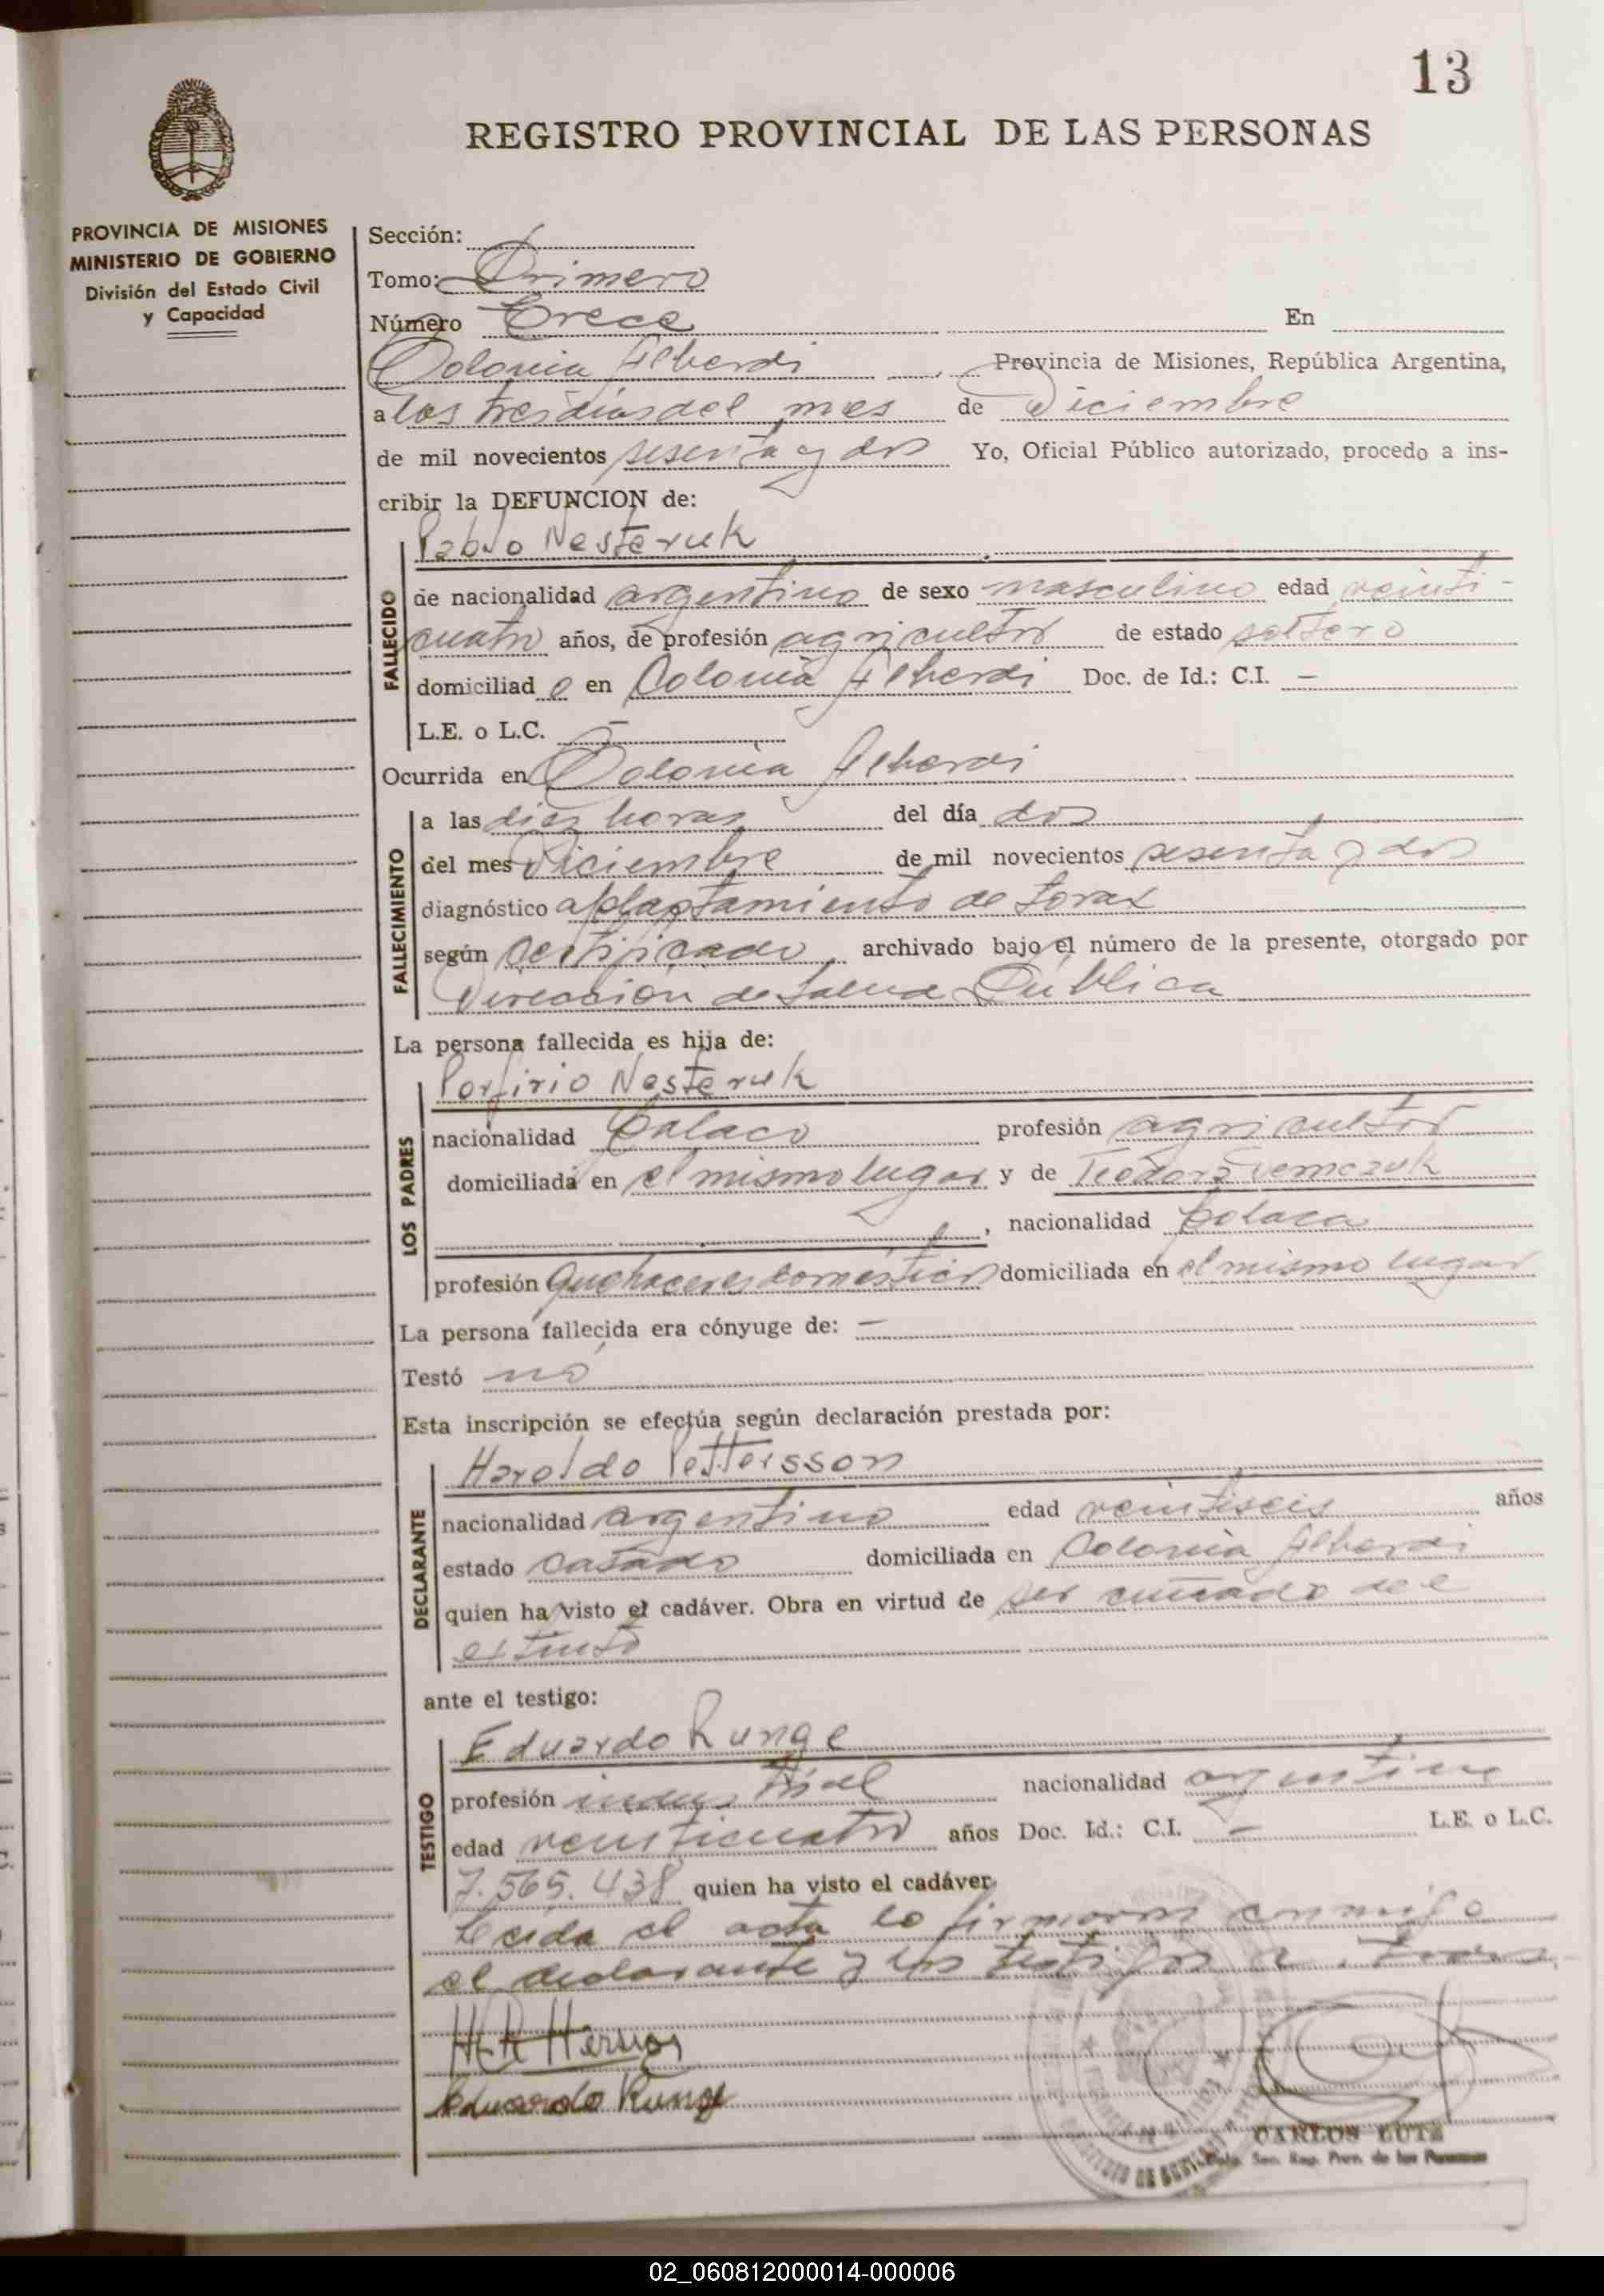 13
REGISTRO PROVINCIAL DE LAS PERSONAS
PROVINCIA DE MISIONES
MINISTERIO DE GOBIERNO
División del Estado Civil
y Capacidad
Sección:
Tomo: Primero
Número Trece En
Colonia Alberdi, Provincia de Misiones, República Argentina,
a los tres días del mes de Diciembre
de mil novecientos sesenta y dos Yo, Oficial Público autorizado, procedo a ins-
cribir la DEFUNCION de:
FALLECIDO
Pablo Nesteruk
de nacionalidad argentino de sexo masculino edad veinti-
cuatro años, de profesión agricultor de estado soltero
domiciliad o en Colonia Alberdi Doc. de Id.: C.I. —
L.E. o L.C. —
Ocurrida en Colonia Alberdi
FALLECIMIENTO
a las diez horas del día dos
del mes Diciembre de mil novecientos sesenta y dos
diagnóstico aplaptamiento de torax
según certificado, archivado bajo el número de la presente, otorgado por
Dirección de Salud Pública
La persona fallecida es hija de:
LOS PADRES
Porfirio Nesteruk
nacionalidad Polaco profesión agricultor
domiciliada en el mismo lugar y de Teodora
, nacionalidad Polaca
profesión quehaceres domésticos domiciliada en el mismo lugar
La persona fallecida era cónyuge de: —
Testó no
Esta inscripción se efectúa según declaración prestada por:
DECLARANTE
Haroldo Pettersson
nacionalidad argentino edad veintiseis años
estado casado domiciliada en Colonia Alberdi
quien ha visto el cadáver. Obra en virtud de ser cuñado del
extinto
ante el testigo:
TESTIGO
Eduardo Runge
profesión industrial nacionalidad argentino
edad veinticuatro años Doc. Id.: C.I. — L.E. o L.C.
7.565.438 quien ha visto el cadáver.
Leida el acta lo firmaron conmigo
el declarante y los testigos
Eduardo Runge
CARLOS LUTZ
Sec. Reg. Prov. de las Personas
02_060812000014-000006